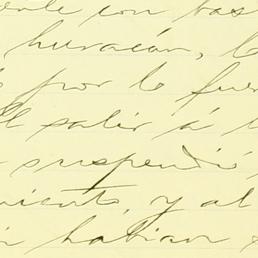 ente con bas
huracán, l
por lo fuer
Al salir á l
suspendió,
iento, y al
habian